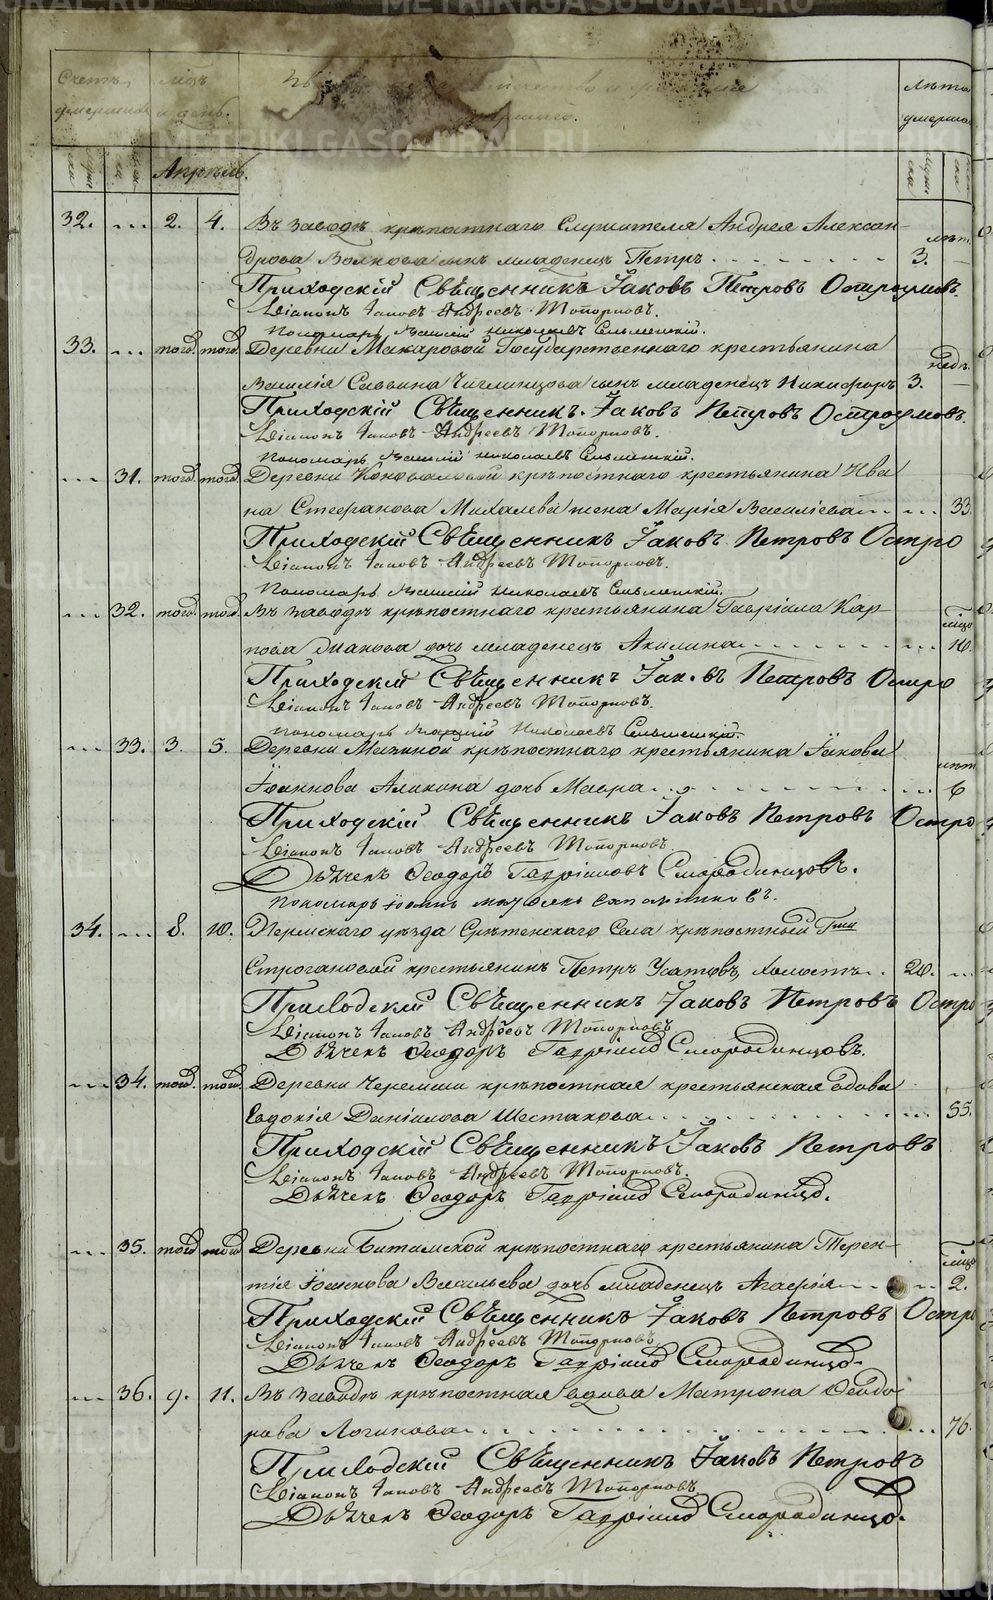 METRIKI.GASO-URAL.RU
Счетъ умершихъ
мѣсяцъ и день.
умершаго.
Лѣта умершаго
Апрѣль.
32. — 2. 4. Въ заводѣ крѣпостнаго Служителя Андрея Алексан-
лѣт.
дрова Волкова сынъ младенецъ Петръ 3. —
Приходскій Священникъ Іаковъ Петровъ Остроумовъ.
Діаконъ Іаковъ Андреевъ Топорковъ.
Пономарь Николаевъ
33. — тогож. тогож. Деревни Макаровой Государственнаго крестьянина
нед.
Василія Саввина сынъ младенецъ Никифоръ 3. —
Приходскій Священникъ Іаковъ Петровъ Остроумовъ.
Діаконъ Іаковъ Андреевъ Топорковъ.
Пономарь Николаевъ
— 31. тогож. тогож. Деревни Коноваловой крѣпостнаго крестьянина Ива
на Стефанова Михалева жена Марія Василіева — 33
Приходскій Священникъ Іаковъ Петровъ Остро
Діаконъ Іаковъ Андреевъ Топорковъ.
Пономарь Николаевъ
— 32. тогож. тогож. Въ заводѣ крѣпостнаго крестьянина Гавріила Кар-
мѣсяц.
пова дочь младенецъ Акилина — 10.
Приходскій Священникъ Іаковъ Петровъ Остро
Діаконъ Іаковъ Андреевъ Топорковъ.
Пономарь Николаевъ
— 33. 3. 5. Деревни крѣпостнаго крестьянина Іакова
лѣт
Іоаннова Аликина дочь Мавра — 6
Приходскій Священникъ Іаковъ Петровъ Остро
Діаконъ Іаковъ Андреевъ Топорковъ.
Дьячекъ Ѳеодоръ Гавріиловъ Смородинцовъ.
Пономарь Іоаннъ Сапожниковъ.
34. — 8. 10. Пермскаго уѣзда Срѣтенскаго Села крѣпостный Гжи
Строгановой крестьянинъ Петръ Усатовъ, холостъ 20. —
Приходскій Священникъ Іаковъ Петровъ Остро
Діаконъ Іаковъ Андреевъ Топорковъ
Дьячекъ Ѳеодоръ Гавріиловъ Смородинцовъ.
— 34. тогож. тогож. Деревни Черемши крѣпостная крестьянская вдова
Евдокія Даніилова Шестакова — 55.
Приходскій Священникъ Іаковъ Петровъ
Діаконъ Іаковъ Андреевъ Топорковъ.
Дьячекъ Ѳеодоръ Гавріиловъ Смородинцов.
— 35. тогож тогож Деревни Битимской крѣпостнаго крестьянина Терен-
мѣсяц
тія Іоаннова Васильева дочь младенецъ Агафія — 2.
Приходскій Священникъ Іаковъ Петровъ Остро
Діаконъ Іаковъ Андреевъ Топорковъ.
Дьячекъ Ѳеодоръ Гавріиловъ Смородинцов.
— 36. 9. 11. Въ заводѣ крѣпостная вдова Матрона Ѳеодо
рова Логинова — 76.
Приходскій Священникъ Іаковъ Петровъ
Діаконъ Іаковъ Андреевъ Топорковъ
Дьячекъ Ѳеодоръ Гавріиловъ Смородинцов.
METRIKI.GASO-URAL.RU